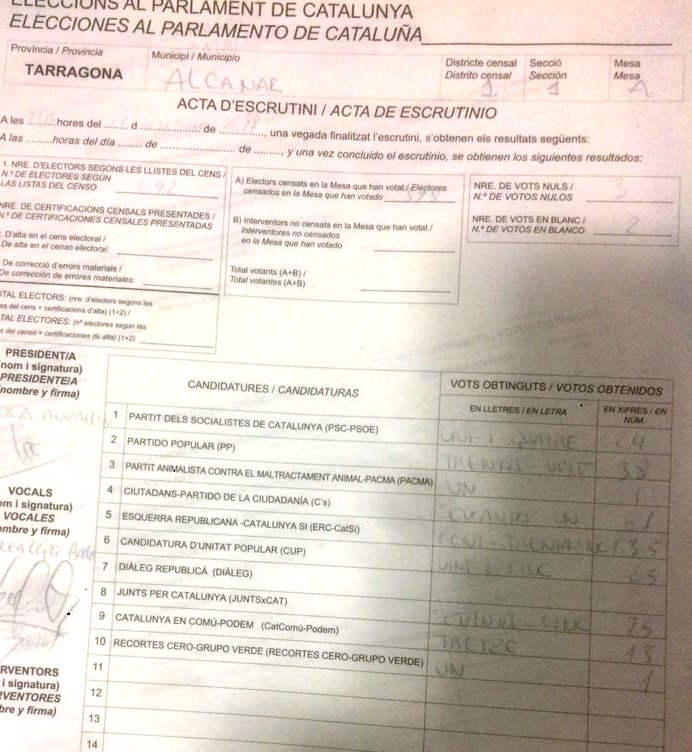 ELECCIONS AL PARLAMENT DE CATALUNYA
ELECCIONES AL PARLAMENTO DE CATALUÑA
Província / Provincia
TARRAGONA
Municipi / Municipio
ALCANAR.
Districte censal
Distrito censal
1
Secció
Sección
1
Mesa
Mesa
A
ACTA D'ESCRUTINI / ACTA DE ESCRUTINIO
A les ........ hores del ..... d ................ de ............, una vegada finalitzat l'escrutini, s'obtenen els resultats següents:
A las ........horas del día ....... de .................... de ........, y una vez concluido el escrutinio, se obtienen los siguientes resultados:
1. NRE. D'ELECTORS SEGONS LES LLISTES DEL CENS /
N.º DE ELECTORES SEGÚN
LAS LISTAS DEL CENSO
NRE. DE CERTIFICACIONS CENSALS PRESENTADES /
N.º DE CERTIFICACIONES CENSALES PRESENTADAS
. D'alta en el cens electoral /
De alta en el censo electoral:
De correcció d'errors materials /
De corrección de errores materiales:
TOTAL ELECTORS: (nre. d'electors segons les
es del cens + certificacions d'alta) (1+2) /
TAL ELECTORES: (nº electores según las
s del censo + certificaciones de alta) (1+2)
A) Electors censats en la Mesa que han votat / Electores
censados en la Mesa que han votado
B) Interventors no censats en la Mesa que han votat /
Interventores no censados
en la Mesa que han votado
Total votants (A+B) /
Total votantes (A+B)
NRE. DE VOTS NULS / 3
N.º DE VOTOS NULOS
NRE. DE VOTS EN BLANC / 2
N.º DE VOTOS EN BLANCO
PRESIDENT/A
nom i signatura)
PRESIDENTE/A
nombre y firma)
VOCALS
om i signatura)
VOCALES
ombre y firma)
RVENTORS
i signatura)
RVENTORES
bre y firma)
CANDIDATURES / CANDIDATURAS
VOTS OBTINGUTS / VOTOS OBTENIDOS
EN LLETRES / EN LETRA
EN XIFRES / EN
NÚM.
1 PARTIT DELS SOCIALISTES DE CATALUNYA (PSC-PSOE) VINT-I-QUATRE 24
2 PARTIDO POPULAR (PP) TRENTA-VUIT 38
3 PARTIT ANIMALISTA CONTRA EL MALTRACTAMENT ANIMAL-PACMA (PACMA) UN 1
4 CIUTADANS-PARTIDO DE LA CIUDADANÍA (C's) UN 61
5 ESQUERRA REPUBLICANA -CATALUNYA SI (ERC-CatSí) 135
6 CANDIDATURA D'UNITAT POPULAR (CUP) VINT-I-CINC 25
7 DIÀLEG REPUBLICÀ (DIÀLEG)
8 JUNTS PER CATALUNYA (JUNTSxCAT) 75
9 CATALUNYA EN COMÚ-PODEM (CatComú-Podem) 13
10 RECORTES CERO-GRUPO VERDE (RECORTES CERO-GRUPO VERDE) UN 1
11
12
13
14